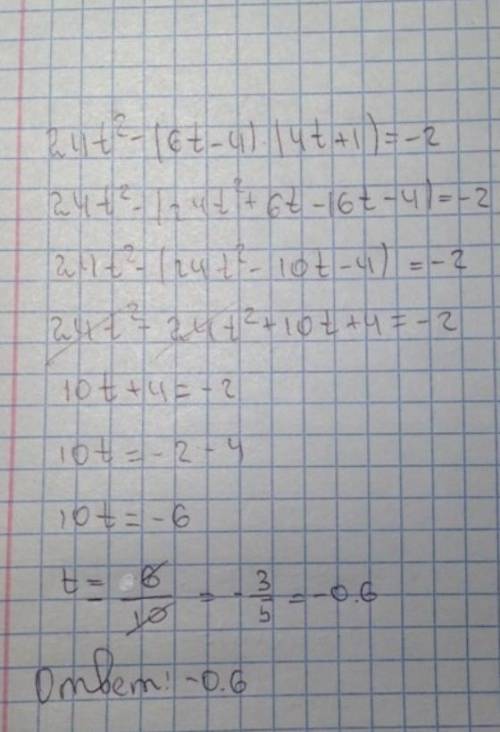 24t² - (6t - 4) · (4t + 1) = -2
24t² - (24t² + 6t - 16t - 4) = -2
24t² - (24t² - 10t - 4) = -2
24t² - 24t² + 10t + 4 = -2
10t + 4 = -2
10t = -2 - 4
10t = -6
t = -6/10 = -3/5 = -0.6
Ответ: -0.6